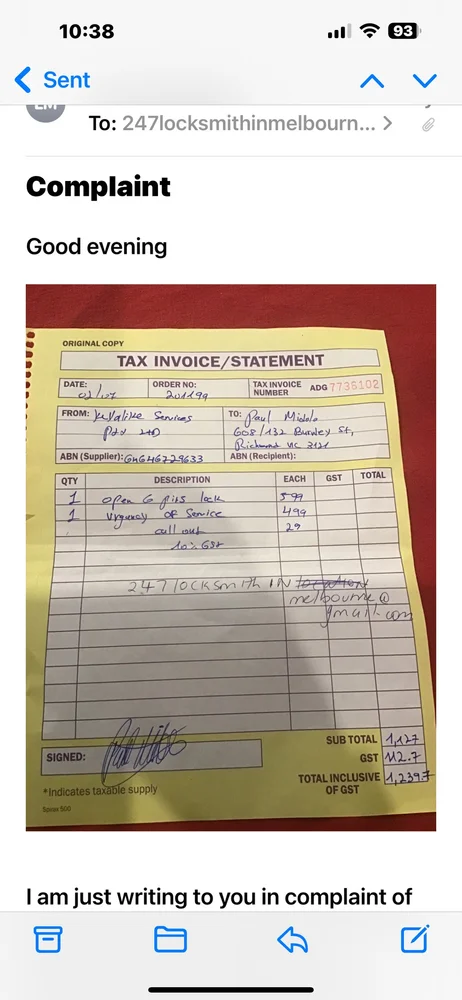 10:38
93
Sent
To: 247locksmithinmelbourn...
Complaint
Good evening
ORIGINAL COPY
TAX INVOICE/STATEMENT
DATE: 02/07
ORDER NO: 201199
TAX INVOICE NUMBER ADG 7736102
FROM: Services
P2y LTD
TO: Paul
608/132 Burnley St,
Richmond VIC 3121
ABN (Supplier):
ABN (Recipient):
QTY DESCRIPTION EACH GST TOTAL
1 open 6 pins lock 599
1 Urgency of Service 499
call out 29
10% GST
247locksmith IN location
melbourne@
gmail.com
SUB TOTAL 1,127
SIGNED:
GST 112.7
TOTAL INCLUSIVE OF GST 1,239.7
*Indicates taxable supply
Spirax 500
I am just writing to you in complaint of